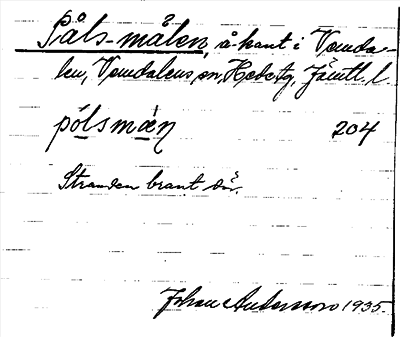 Påls-målen, å-kant i Vemda-
len, Vemdalens sn, Hede tg, Jämtl. l.
pólsmæ̀n 204
Stranden brant där.
Johan Anderson 1935.